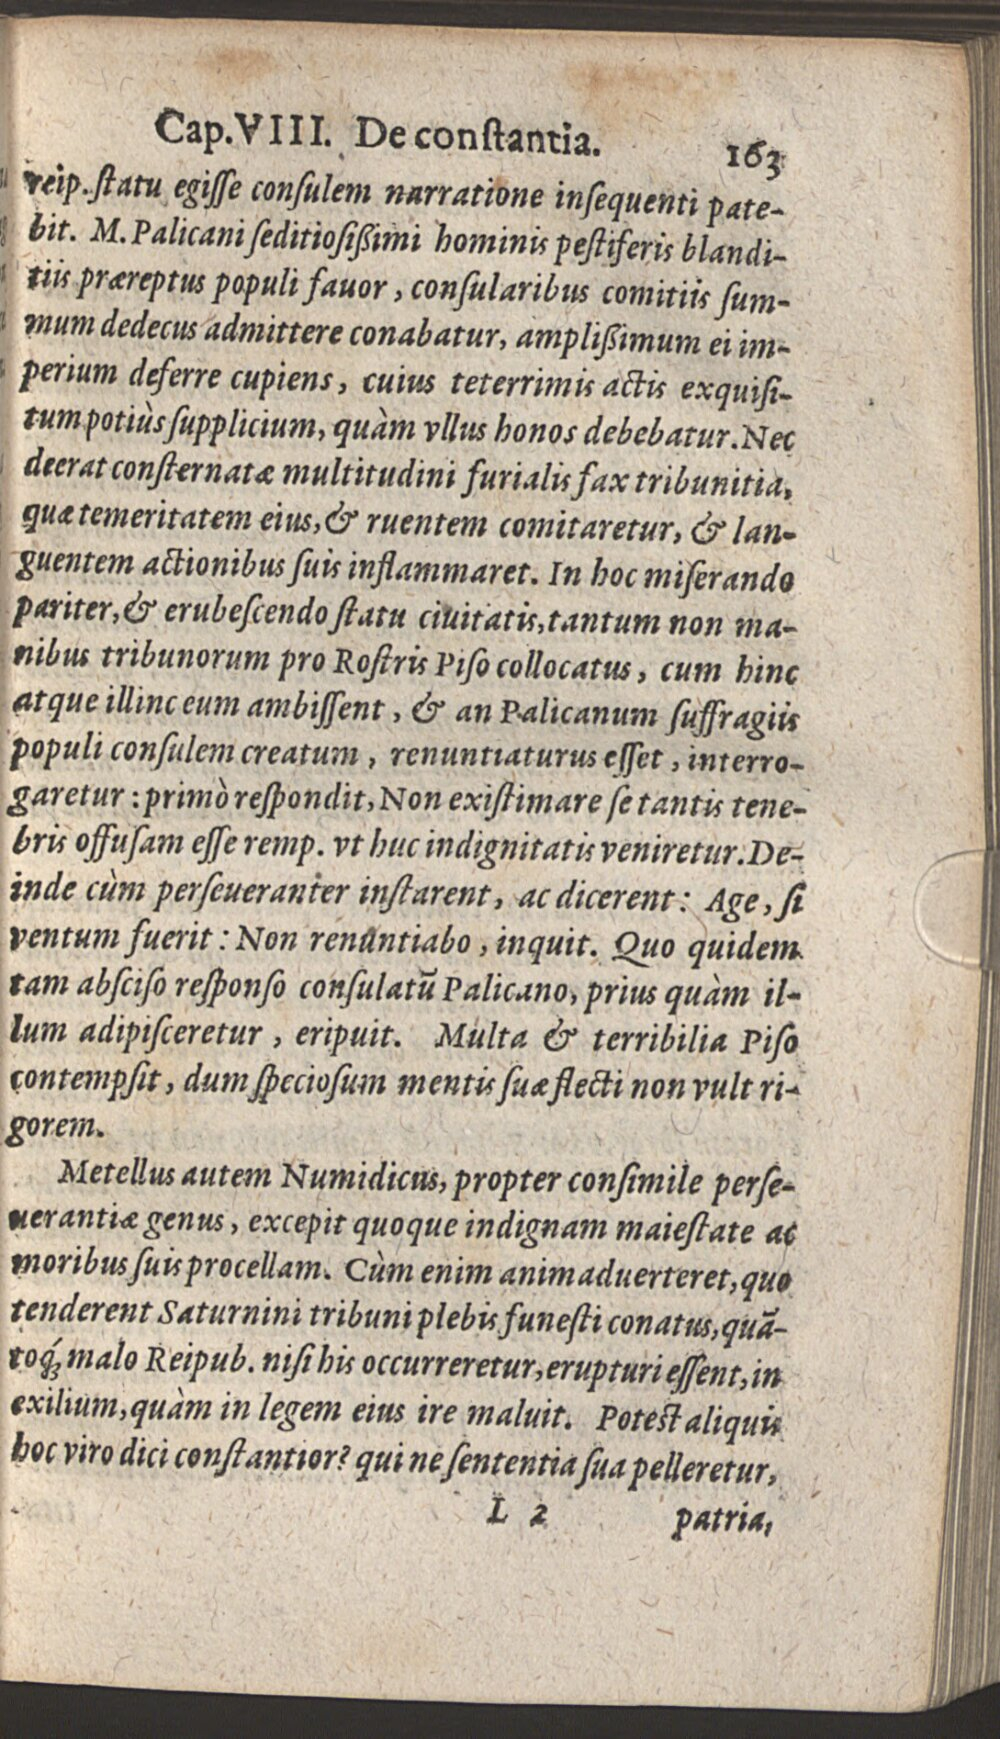 Cap. VIII. De conſtantia. 163
reip. ſtatu egiſſe conſulem narratione inſequenti pate-
bit. M. Palicani ſeditioſißimi hominis peſtiferis blandi-
tiis præreptus populi fauor, conſularibus comitiis ſum-
mum dedecus admittere conabatur, amplißimum ei im-
perium deferre cupiens, cuius teterrimis actis exquiſi-
tum potiùs ſupplicium, quàm vllus honos debebatur. Nec
deerat conſternatæ multitudini furialis fax tribunitia,
quæ temeritatem eius, & ruentem comitaretur, & lan-
guentem actionibus ſuis inflammaret. In hoc miſerando
pariter, & erubeſcendo ſtatu ciuitatis, tantum non ma-
nibus tribunorum pro Roſtris Piſo collocatus, cum hinc
atque illinc eum ambiſſent, & an Palicanum ſuffragiis
populi conſulem creatum, renuntiaturus eſſet, interro-
garetur: primò reſpondit, Non exiſtimare ſe tantis tene-
bris offuſam eſſe remp. vt huc indignitatis veniretur. De-
inde cùm perſeueranter inſtarent, ac dicerent: Age, ſi
ventum fuerit: Non renuntiabo, inquit. Quo quidem
tam abſciſo reſponſo conſulatū Palicano, prius quàm il-
lum adipiſceretur, eripuit. Multa & terribilia Piſo
contempſit, dum ſpecioſum mentis ſuæ flecti non vult ri-
gorem.
Metellus autem Numidicus, propter conſimile perſe-
uerantiæ genus, excepit quoque indignam maieſtate ac
moribus ſuis procellam. Cùm enim animaduerteret, quo
tenderent Saturnini tribuni plebis funeſti conatus, quā-
toq́; malo Reipub. niſi his occurreretur, erupturi eſſent, in
exilium, quàm in legem eius ire maluit. Poteſt aliquis
hoc viro dici conſtantior? qui ne ſententia ſua pelleretur,
L 2 patria,